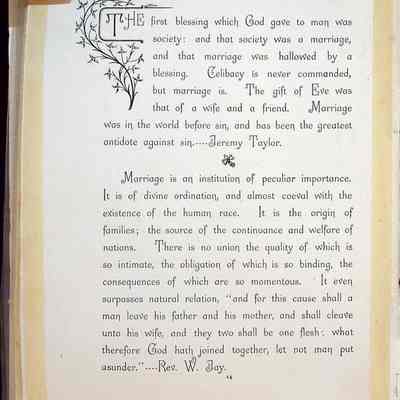 THE first blessing which God gave to man was
society: and that society was a marriage,
and that marriage was hallowed by a
blessing. Celibacy is never commanded,
but marriage is. The gift of Eve was
that of a wife and a friend. Marriage
was in the world before sin, and has been the greatest
antidote against sin.----Jeremy Taylor.
Marriage is an institution of peculiar importance.
It is of divine ordination, and almost coeval with the
existence of the human race. It is the origin of
families; the source of the continuance and welfare of
nations. There is no union the quality of which is
so intimate, the obligation of which is so binding, the
consequences of which are so momentous. It even
surpasses natural relation, "and for this cause shall a
man leave his father and his mother, and shall cleave
unto his wife, and they two shall be one flesh: what
therefore God hath joined together, let not man put
asunder."----Rev. W. Jay.